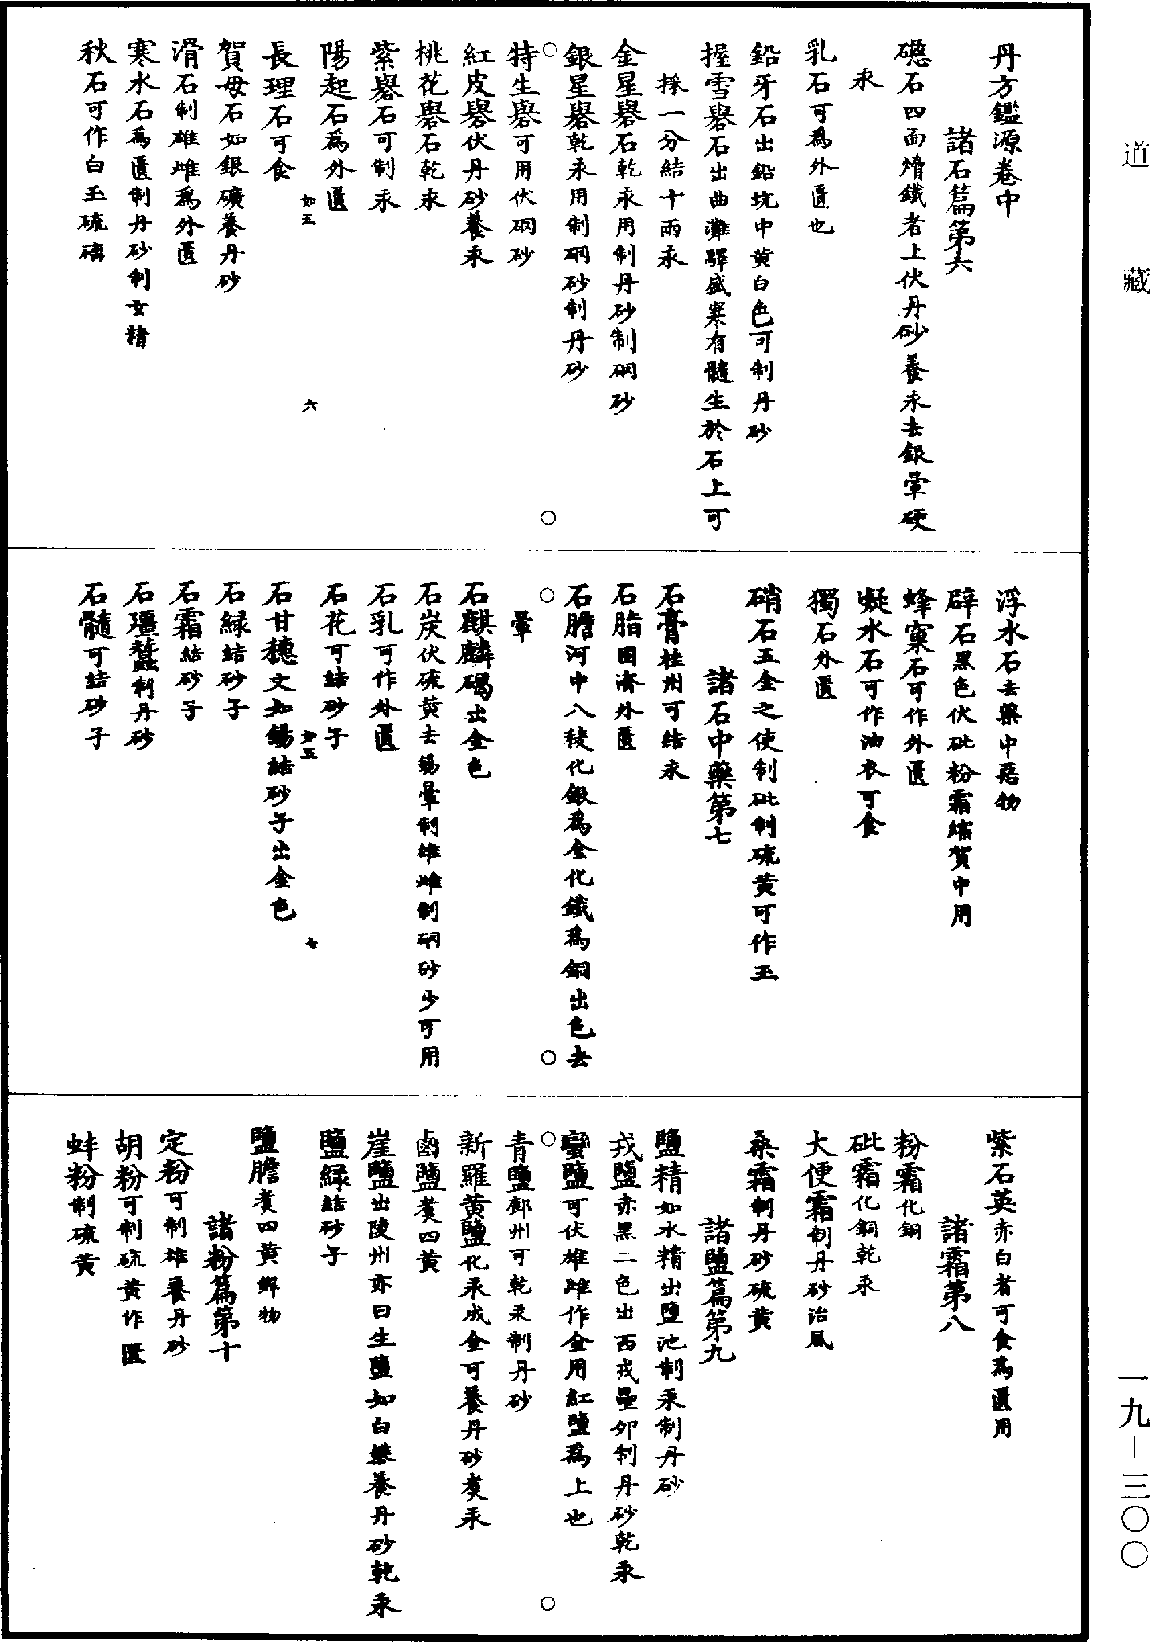 道藏
丹方鑑源卷中
諸石篇第六
磠石四面熁鐵者上伏丹砂養汞去銀暈硬
汞
乳石可為外匱也
鉛牙石出鉛坑中黄白色可制丹砂
握雪礜石出曲灘驛盛寒有髓生於石上可
採一分結十兩汞
金星礜石乾汞用制丹砂制硇砂
銀星礜乾汞用制硇砂制丹砂
特生礜可用伏硇砂
紅皮礜伏丹砂養汞
桃花礜石乾汞
紫礜石可制汞
陽起石為外匱
如五
六
長理石可食
賀母石如銀礦養丹砂
滑石制雄雌為外匱
寒水石為匱制丹砂制玄精
秋石可作白玉硫磺
浮水石去藥中惡物
辟石黑色伏砒粉霜縮賀中用
蜂窠石可作外匱
凝水石可作油衣可食
獨石外匱
硝石五金之使制砒制硫黄可作玉
諸石中藥第七
石膏桂州可結汞
石脂固濟外匱
石膽河中八稜化鍛為金化鐵為銅出色去
暈
石麒麟碣出金色
石炭伏硫黄去錫暈制雄雌制硇砂少可用
石乳可作外匱
石花可結砂子
如五
七
石甘穗文如錫結砂子出金色
石緑結砂子
石霜結砂子
石殭蠶制丹砂
石髓可結砂子
紫石英赤白者可食為匱用
諸霜第八
粉霜化銅
砒霜化銅乾汞
大便霜制丹砂治風
桑霜制丹砂硫黄
諸鹽篇第九
鹽精如水精出鹽池制汞制丹砂
戎鹽赤黑二色出西戎壘卵制丹砂乾汞
蠻鹽可伏雄雌作金用紅鹽為上也
青鹽鄜州可乾汞制丹砂
新羅黄鹽化汞成金可養丹砂煑汞
鹵鹽煑四黄
崖鹽出陵州亦曰生鹽如白礬養丹砂乾汞
鹽緑結砂子
鹽膽煑四黄銲物
諸粉篇第十
定粉可制雄養丹砂
胡粉可制硫黄作匱
蚌粉制硫黄
一九–三〇〇